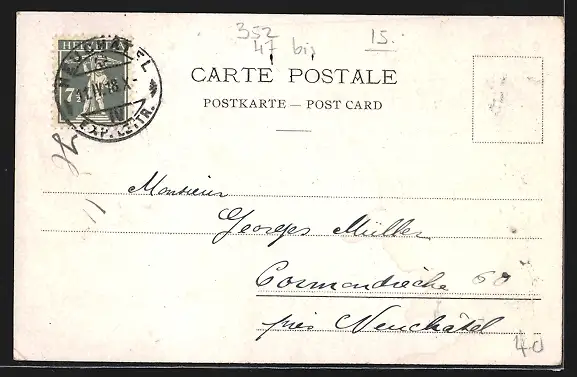 352
47 bis
15.
HELVETIA
7½
EXP. LETTR.
CARTE POSTALE
POSTKARTE — POST CARD
Monsieur
Georges Müller
Cormondrèche 60
près Neuchâtel
40